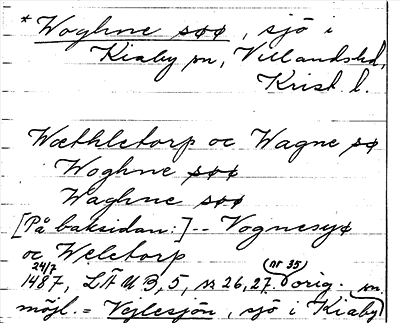 * Woghne søø, sjö i
Kiaby sn, Villandshd,
Krist. l.
Wæthletorp oc Wagne sø
Woghne søø
Waghne søø
[På baksidan:] -- Vognesyø
oc Weletorp
24/7 (nr 35)
1487, LÄUB, 5, s 26, 27. orig.
möjl. = Vejlesjön, sjö i Kiaby sn.